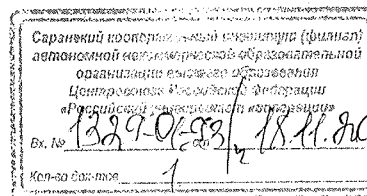 Саранский кооперативный институт (филиал)
автономной некоммерческой образовательной
организации высшего образования
Центросоюза Российской Федерации
«Российский университет кооперации»
Вх. №
18.11.20
Кол-во док-тов 1